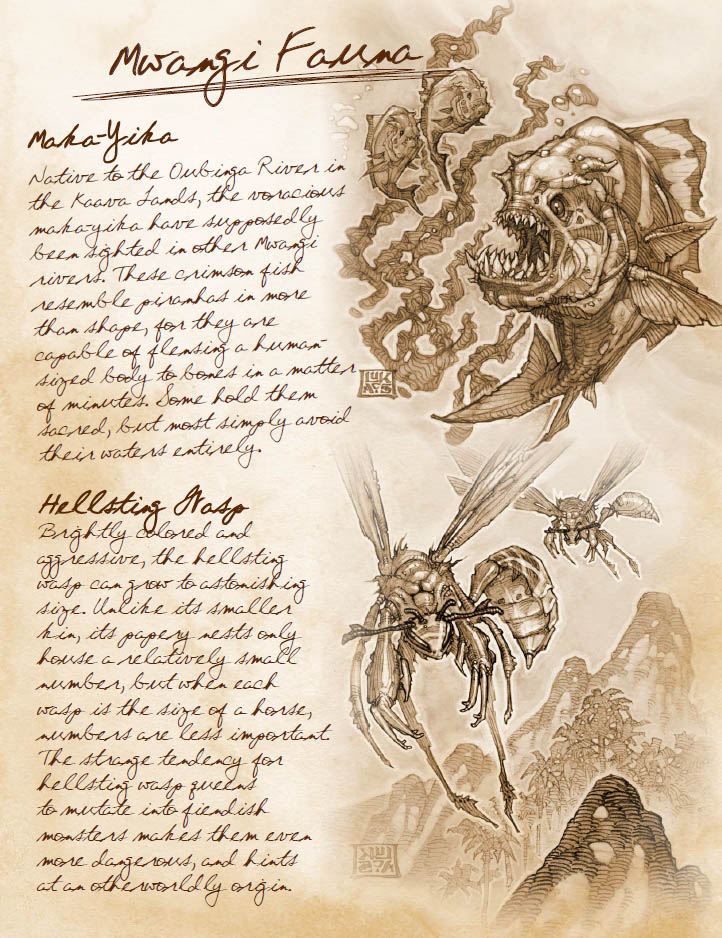 Mwangi Fauna
Maka-Yika
Native to the Oubinga River in
the Kaava Lands, the voracious
maka-yika have supposedly
been sighted in other Mwangi
rivers. These crimson fish
resemble piranhas in more
than shape, for they are
capable of flensing a human-
sized body to bones in a matter
of minutes. Some hold them
sacred, but most simply avoid
their waters entirely.
Hellsting Wasp
Brightly colored and
aggressive, the hellsting
wasp can grow to astonishing
size. Unlike its smaller
kin, its papery nests only
house a relatively small
number, but when each
wasp is the size of a horse,
numbers are less important.
The strange tendency for
hellsting wasp queens
to mutate into fiendish
monsters makes them even
more dangerous, and hints
at an otherworldly origin.